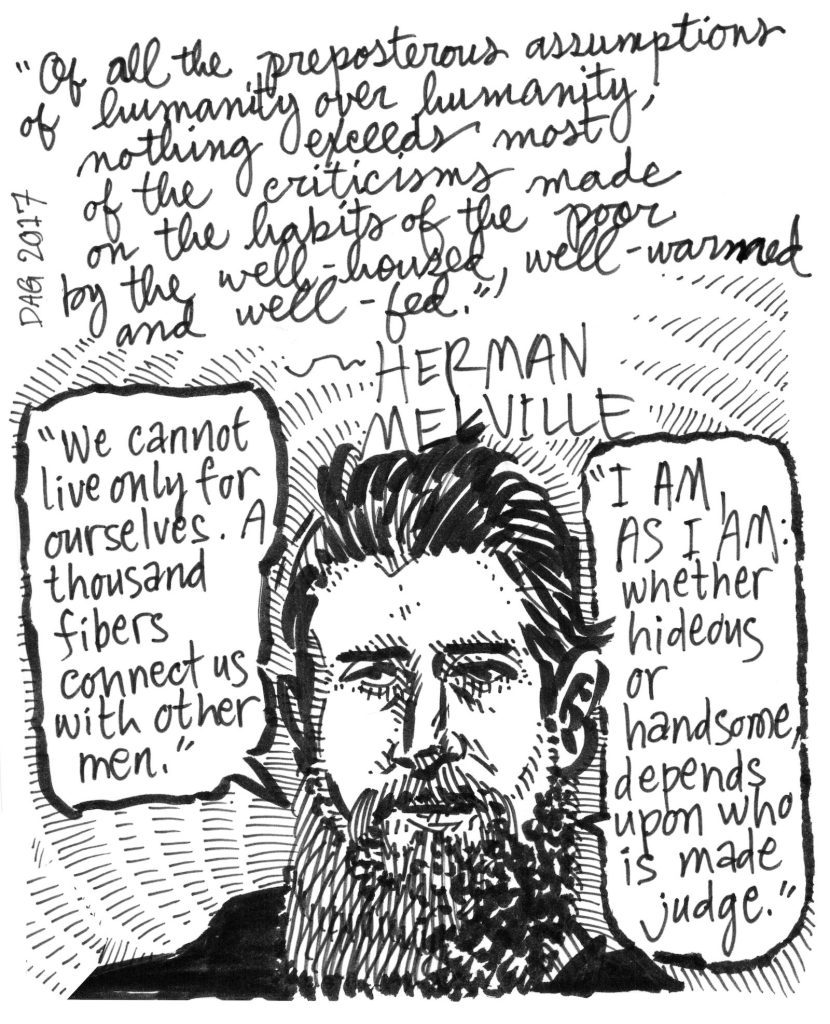 "Of all the preposterous assumptions
of humanity over humanity,
nothing exceeds most
of the criticisms made
on the habits of the poor
by the well-housed, well-warmed
and well-fed."
~ HERMAN
MELVILLE
DAG 2017
"We cannot
live only for
ourselves. A
thousand
fibers
connect us
with other
men."
"I AM,
AS I AM:
whether
hideous
or
handsome,
depends
upon who
is made
judge."